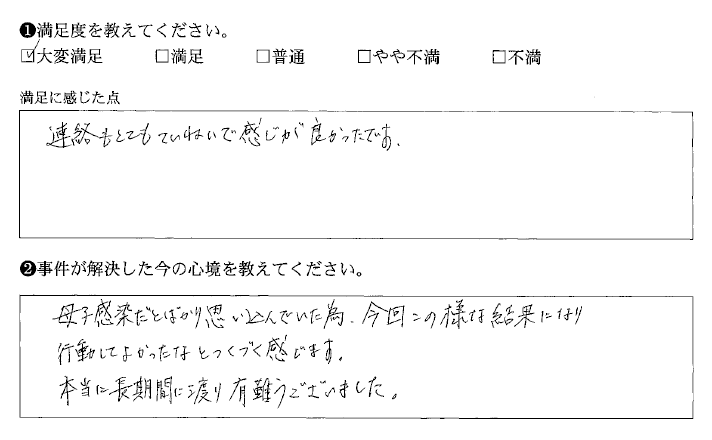 ❶満足度を教えてください。
☑大変満足 □満足 □普通 □やや不満 □不満
満足に感じた点
連絡もとてもていねいで感じが良かったです。
❷事件が解決した今の心境を教えてください。
母子感染だとばかり思い込んでいた為、今回この様な結果になり
行動してよかったなとつくづく感じます。
本当に長期間に渡り有難うございました。